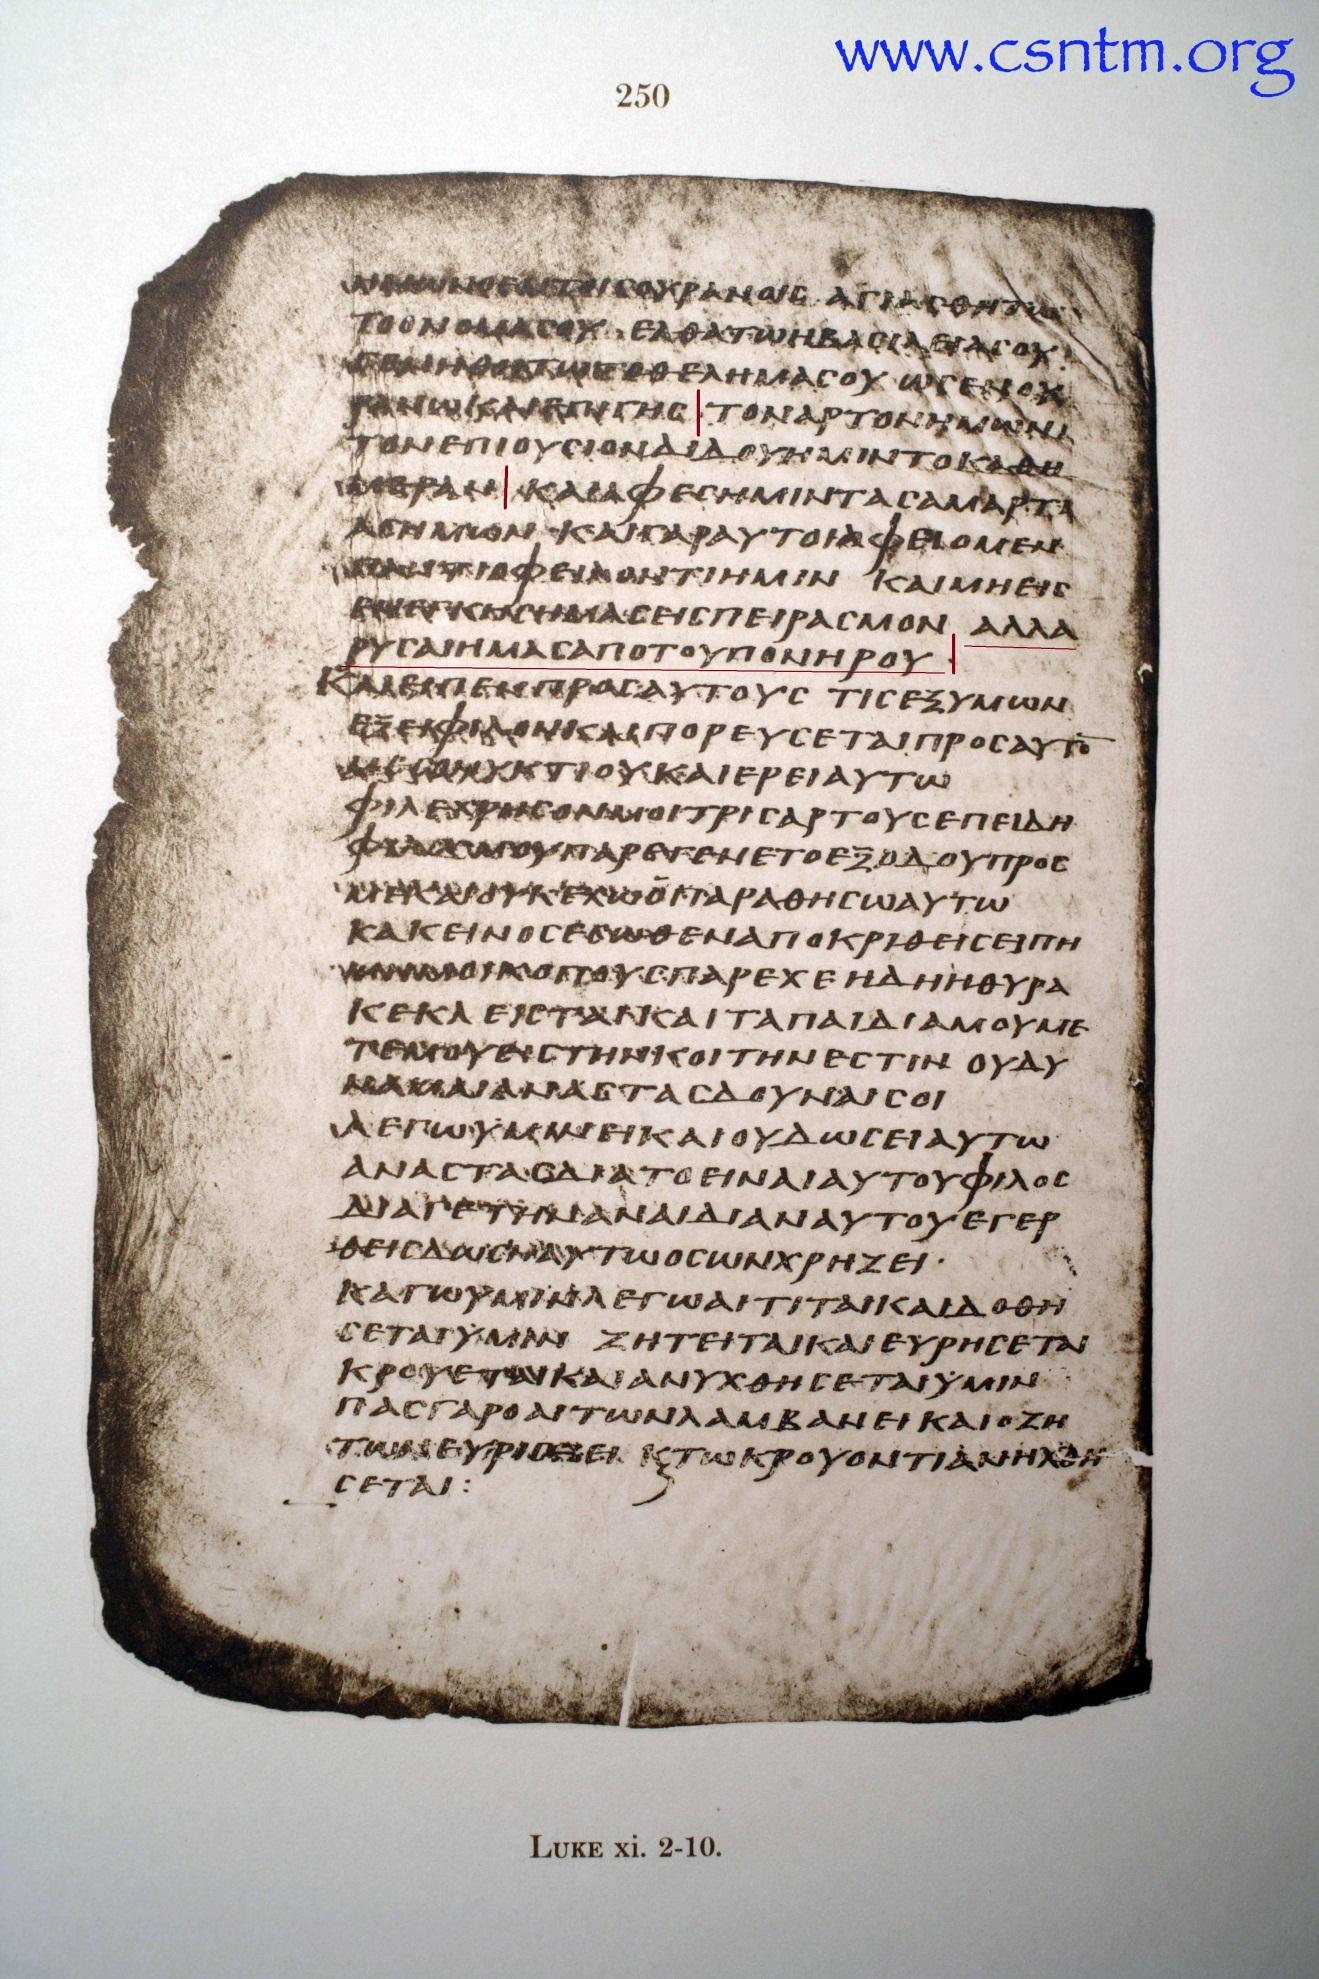 www.csntm.org
250
ΗΜΩΝΟΕΝΤΟΙСΟΥΡΑΝΟΙС ΑΓΙΑСΘΗΤΩ
ΤΟΟΝΟΜΑСΟΥ ΕΛΘΑΤΩΗΒΑСΙΛΕΙΑСΟΥ
ΤΟΘΕΛΗΜΑСΟΥ ΩСΕΝΟΥ
ΚΑΙΕΠΙΓΗС ΤΟΝΑΡΤΟΝΗΜΩΝ
ΤΟΝΕΠΙΟΥСΙΟΝΔΙΔΟΥΗΜΙΝΤΟΚΑΘΗ
ΜΕΡΑΝ ΚΑΙΑΦΕСΗΜΙΝΤΑСΑΜΑΡΤΙ
ΑСΗΜΩΝ ΚΑΙΓΑΡΑΥΤΟΙΑΦΕΙΟΜΕΝ
ΠΑΝΤΙΟΦΕΙΛΟΝΤΙΗΜΙΝ ΚΑΙΜΗΕΙС
ΗΜΑСΕΙСΠΕΙΡΑСΜΟΝ ΑΛΛΑ
ΡΥСΑΙΗΜΑСΑΠΟΤΟΥΠΟΝΗΡΟΥ
ΚΑΙΕΙΠΕΝΠΡΟСΑΥΤΟΥС ΤΙСΕΞΥΜΩΝ
ΕΞΕΙΦΙΛΟΝΚΑΙΠΟΡΕΥСΕΤΑΙΠΡΟСΑΥΤΟ̅
ΜΕСΟΝΥΚΤΙΟΥΚΑΙΕΡΕΙΑΥΤΩ
ΦΙΛΕΧΡΗСΟΝΜΟΙΤΡΙСΑΡΤΟΥСΕΠΕΙΔΗ
ΦΙΛΟСΜΟΥΠΑΡΕΓΕΝΕΤΟΕΞΟΔΟΥΠΡΟС
ΜΕΚΑΙΟΥΚΕΧΩΟΠΑΡΑΘΗСΩΑΥΤΩ
ΚΑΚΕΙΝΟСΕСΩΘΕΝΑΠΟΚΡΙΘΕΙСΕΙΠΗ
ΜΗΜΟΙΚΟΠΟΥСΠΑΡΕΧΕΗΔΗΗΘΥΡΑ
ΚΕΚΛΕΙСΤΑΙΚΑΙΤΑΠΑΙΔΙΑΜΟΥΜΕ
ΤΕΜΟΥΕΙСΤΗΝΚΟΙΤΗΝΕСΤΙΝ ΟΥΔΥ
ΝΑΜΑΙΑΝΑСΤΑСΔΟΥΝΑΙСΟΙ
ΛΕΓΩΥΜΙΝΕΙΚΑΙΟΥΔΩСΕΙΑΥΤΩ
ΑΝΑСΤΑСΔΙΑΤΟΕΙΝΑΙΑΥΤΟΥΦΙΛΟС
ΔΙΑΓΕΤΗΝΑΝΑΙΔΙΑΝΑΥΤΟΥΕΓΕΡ
ΘΕΙСΔΩСΕΙΑΥΤΩΟСΩΝΧΡΗΖΕΙ·
ΚΑΓΩΥΜΙΝΛΕΓΩΑΙΤΙΤΑΙΚΑΙΔΟΘΗ
СΕΤΑΙΥΜΙΝ ΖΗΤΕΙΤΑΙΚΑΙΕΥΡΗСΕΤΑΙ
ΚΡΟΥΕΤΑΙΚΑΙΑΝΥΧΘΗСΕΤΑΙΥΜΙΝ
ΠΑСΓΑΡΟΑΙΤΩΝΛΑΜΒΑΝΕΙΚΑΙΟΖΗ
ΤΩΝΕΥΡΙСΚΕΙ ΚΤΩΚΡΟΥΟΝΤΙΑΝΗΧΘΗ
СΕΤΑΙ:
LUKE xi. 2-10.